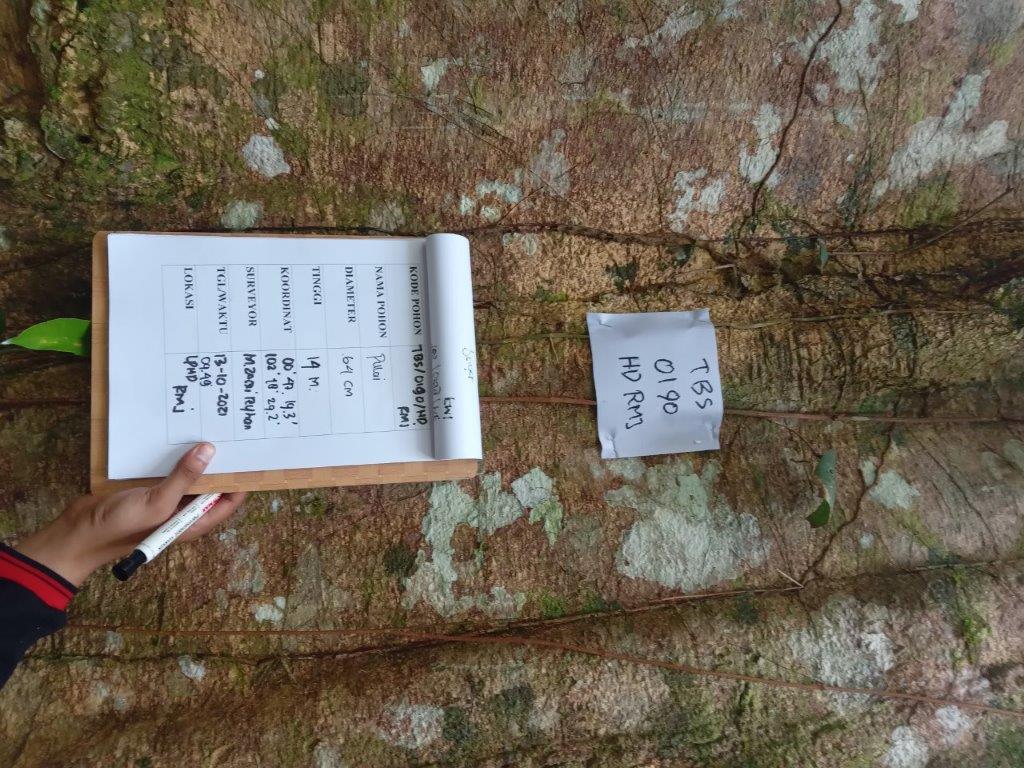 TBS
0190
HD RMJ
KODE POHON TBS/0190/HD
RMJ
NAMA POHON Pulai
DIAMETER 64 CM
TINGGI 14 M.
KOORDINAT 00° 47' 19.3'
102° 18' 29.2'
SURVEYOR
TGL/WAKTU 13-10-2021
09.49
LOKASI LPHD
RMJ